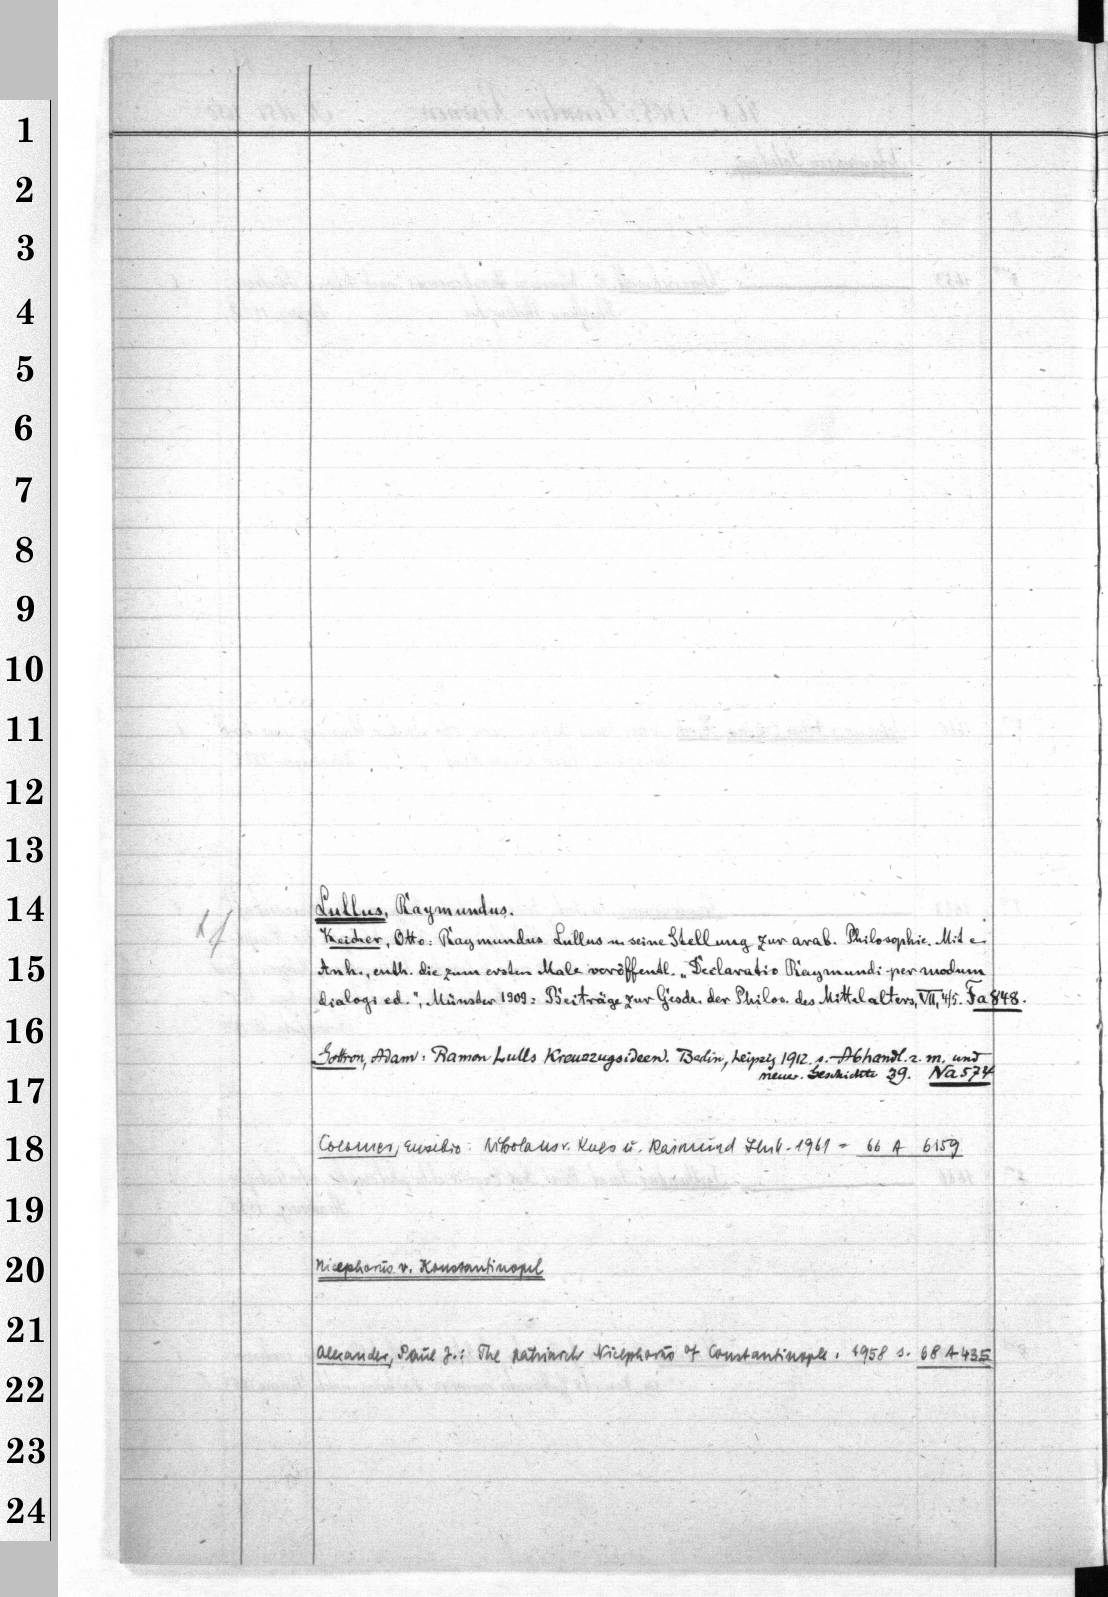 1
2
3
4
5
6
7
8
9
10
11
12
13
14
15
16
17
18
19
20
21
22
23
24
Lullus, Raymundus.
Keicher, Otto: Raymundus Lullus u. seine Stellung zur arab. Philosophie. Mit e.
Anh., enth. die zum ersten Male veröffentl. „Declaratio Raymundi per modum
dialogi ed.", Münster 1909 = Beiträge zur Gesch. der Philos. des Mittelalters, VII, 4/5. Fa 848.
Gottron, Adam: Ramon Lulls Kreuzzugsideen. Berlin, Leipzig 1912. s. Abhandl. z. m. und
neuer. Geschichte 39. Na 574
Colomer, Eusebio: Nikolaus v. Kues u. Raimund Llull. 1961 = 66 A 6159
Nicephorus v. Konstantinopel
Alexander, Paul J.: The patriarch Nicephorus of Constantinople. 1958 s. 68 A 435